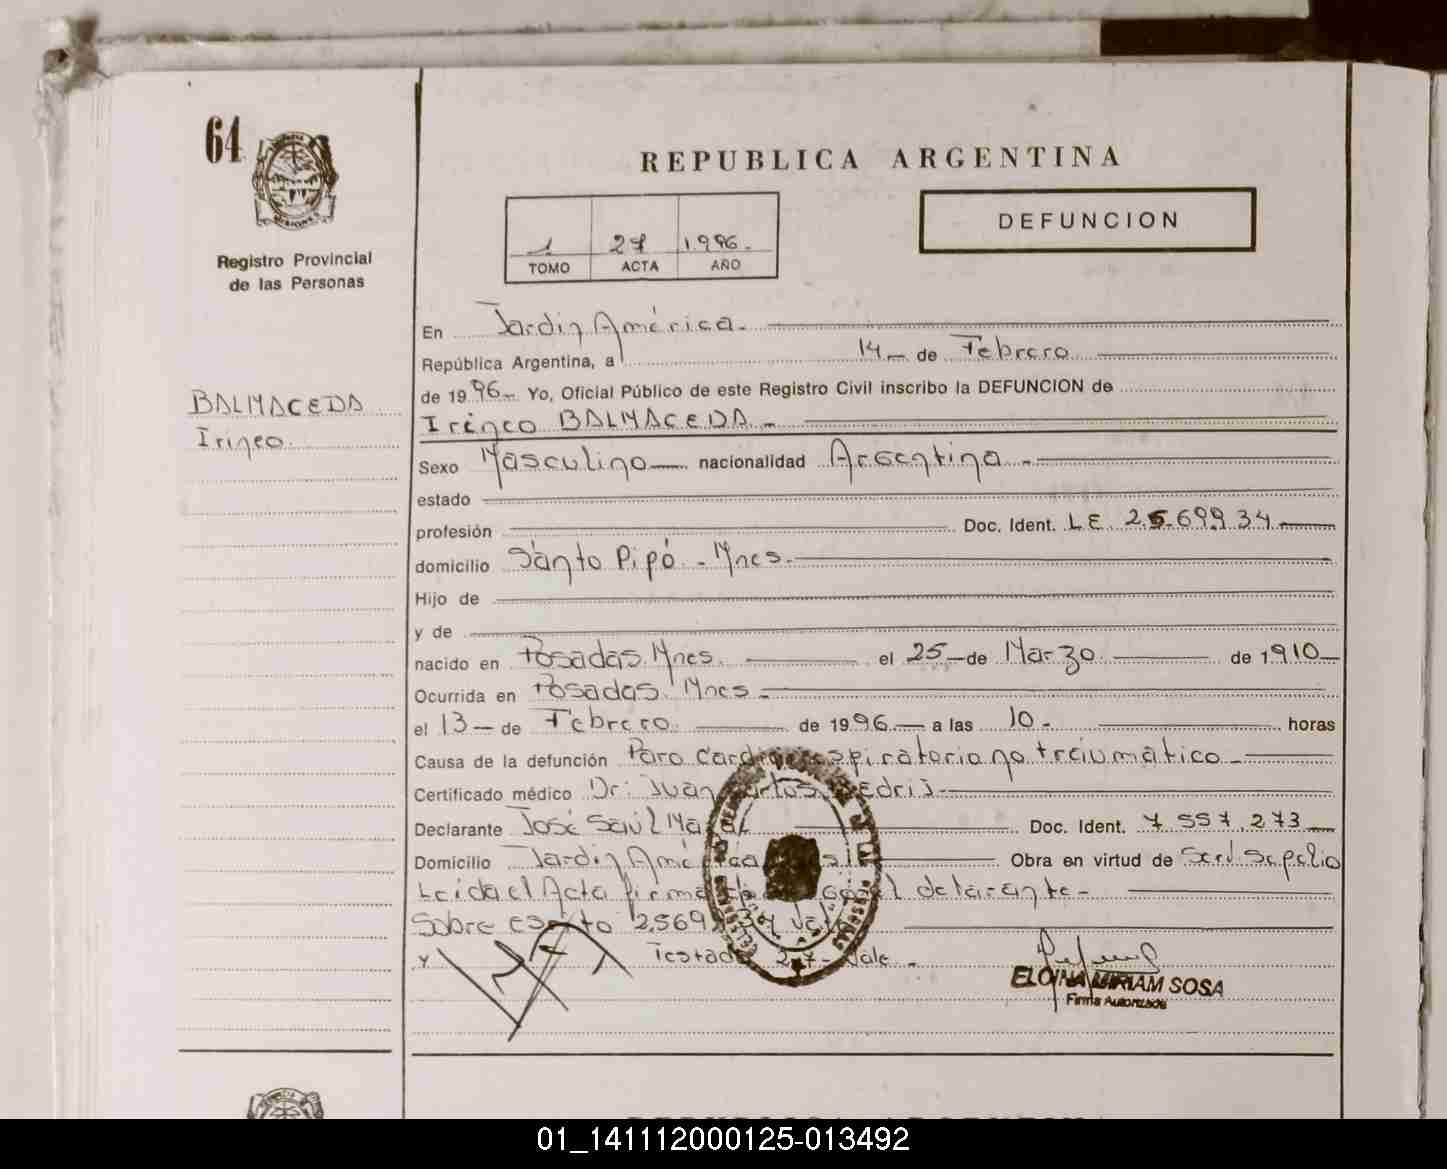 64
REPUBLICA ARGENTINA
1 27 1.996.-
TOMO ACTA AÑO
DEFUNCION
MISIONES
Registro Provincial
de las Personas
BALMACEDA
Irineo.
En Jardin América.-
República Argentina, a 14 - de Febrero
de 1996- Yo, Oficial Público de este Registro Civil inscribo la DEFUNCION de
Irineo BALMACEDA.-
Sexo Masculino - nacionalidad Argentina.-
estado
profesión Doc. Ident. LE 2.569934
domicilio Santo Pipó - Mnes.-
Hijo de
y de
nacido en Posadas. Mnes. el 25 - de Marzo de 1910-
Ocurrida en Posadas. Mnes -
el 13 - de Febrero. de 1996.- a las 10 - horas
Causa de la defunción Paro Cardiorespiratorio no traumático -
Certificado médico Dr: Juan
Declarante José Saúl Doc. Ident. 7 557.273
Domicilio Jardin América Obra en virtud de Serv. Sepelio
Leida el Acta firma delarante -
Sobre escrito 2.569 Vale
y Testado 27- Vale -
ELOINA MIRIAM SOSA
Firma Autorizada
01_141112000125-013492